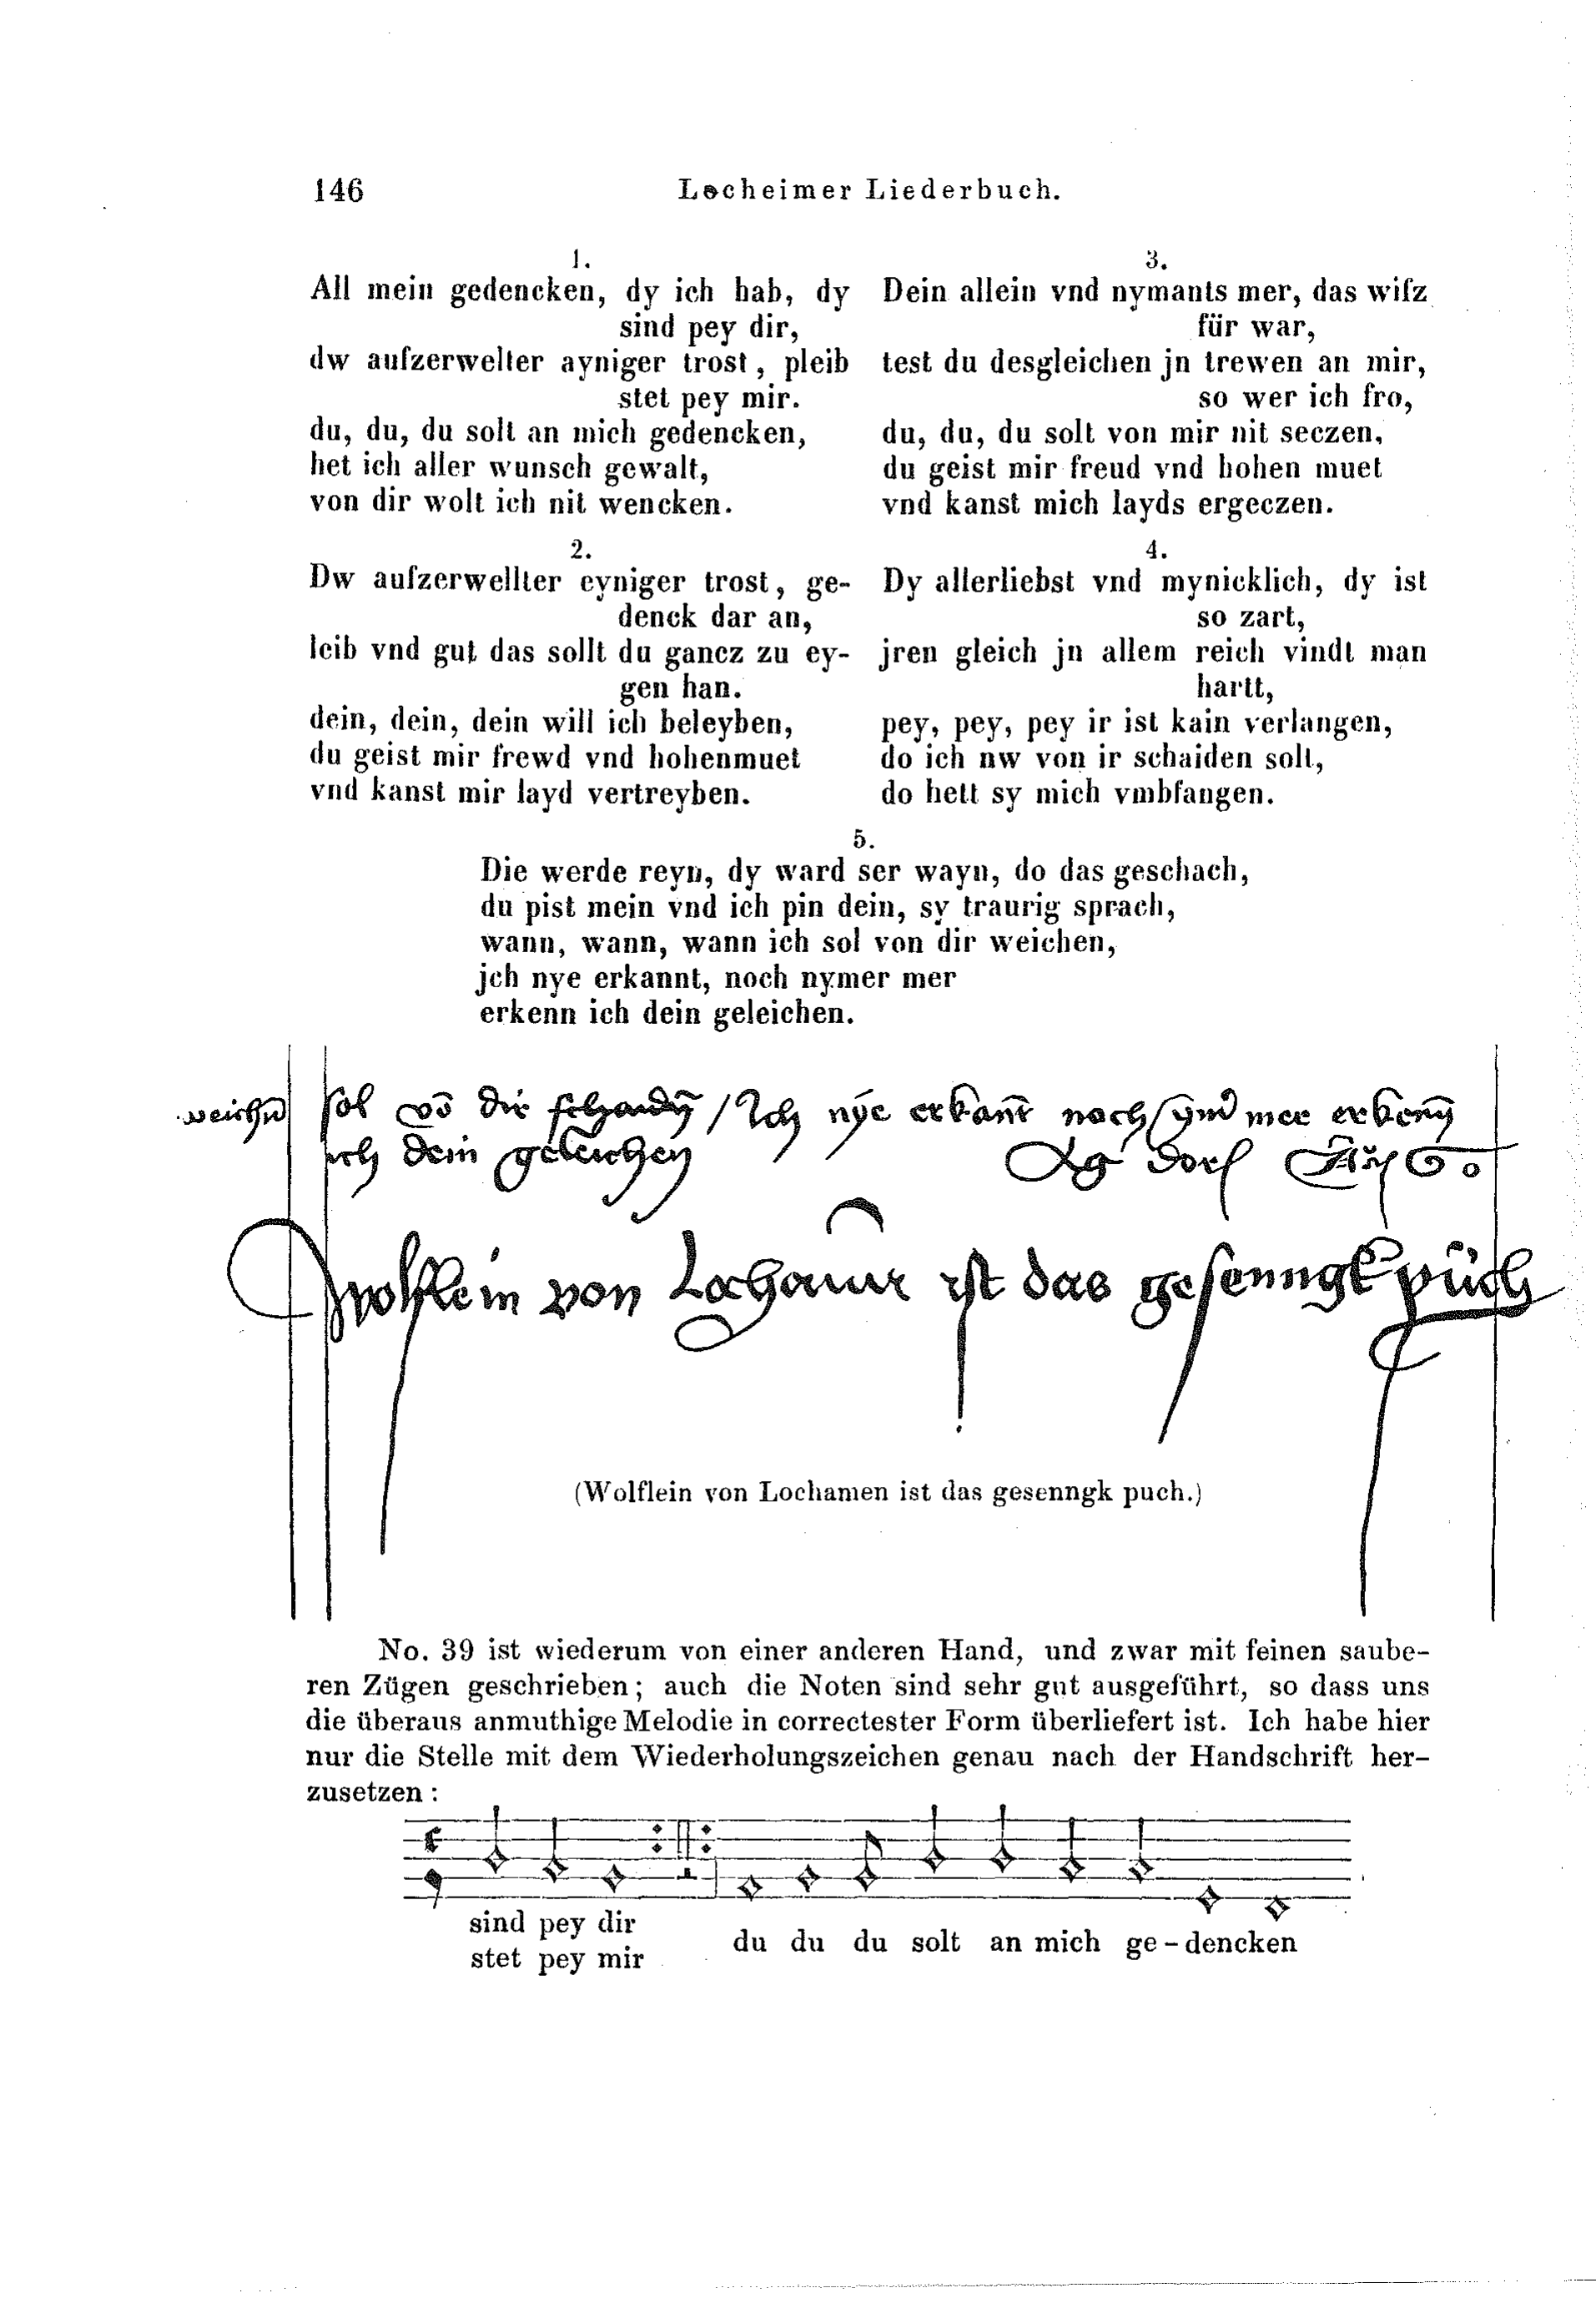 146 Locheimer Liederbuch.
1.
All mein gedencken, dy ich hab, dy
sind pey dir,
dw aufzerwelter ayniger trost, pleib
stet pey mir.
du, du, du solt an mich gedencken,
het ich aller wunsch gewalt,
von dir wolt ich nit wencken.
2.
Dw aufzerwellter eyniger trost, ge-
denck dar an,
leib vnd gut das sollt du gancz zu ey-
gen han.
dein, dein, dein will ich beleyben,
du geist mir frewd vnd hohenmuet
vnd kanst mir layd vertreyben.
3.
Dein allein vnd nymants mer, das wifz
für war,
test du desgleichen jn trewen an mir,
so wer ich fro,
du, du, du solt von mir nit seczen,
du geist mir freud vnd hohen muet
vnd kanst mich layds ergeczen.
4.
Dy allerliebst vnd mynicklich, dy ist
so zart,
jren gleich jn allem reich vindt man
hartt,
pey, pey, pey ir ist kain verlangen,
do ich nw von ir schaiden solt,
do hett sy mich vmbfangen.
5.
Die werde reyn, dy ward ser wayn, do das geschach,
du pist mein vnd ich pin dein, sy traurig sprach,
wann, wann, wann ich sol von dir weichen,
jch nye erkannt, noch nymer mer
erkenn ich dein geleichen.
sol vō dir / Ich nye erkant noch mer
ich dein geleichen
Wolflein von Lochamr ist das gesenngk püch
(Wolflein von Lochamen ist das gesenngk puch.)
No. 39 ist wiederum von einer anderen Hand, und zwar mit feinen saube-
ren Zügen geschrieben; auch die Noten sind sehr gut ausgeführt, so dass uns
die überaus anmuthige Melodie in correctester Form überliefert ist. Ich habe hier
nur die Stelle mit dem Wiederholungszeichen genau nach der Handschrift her-
zusetzen:
sind pey dir du du du solt an mich ge-dencken
stet pey mir